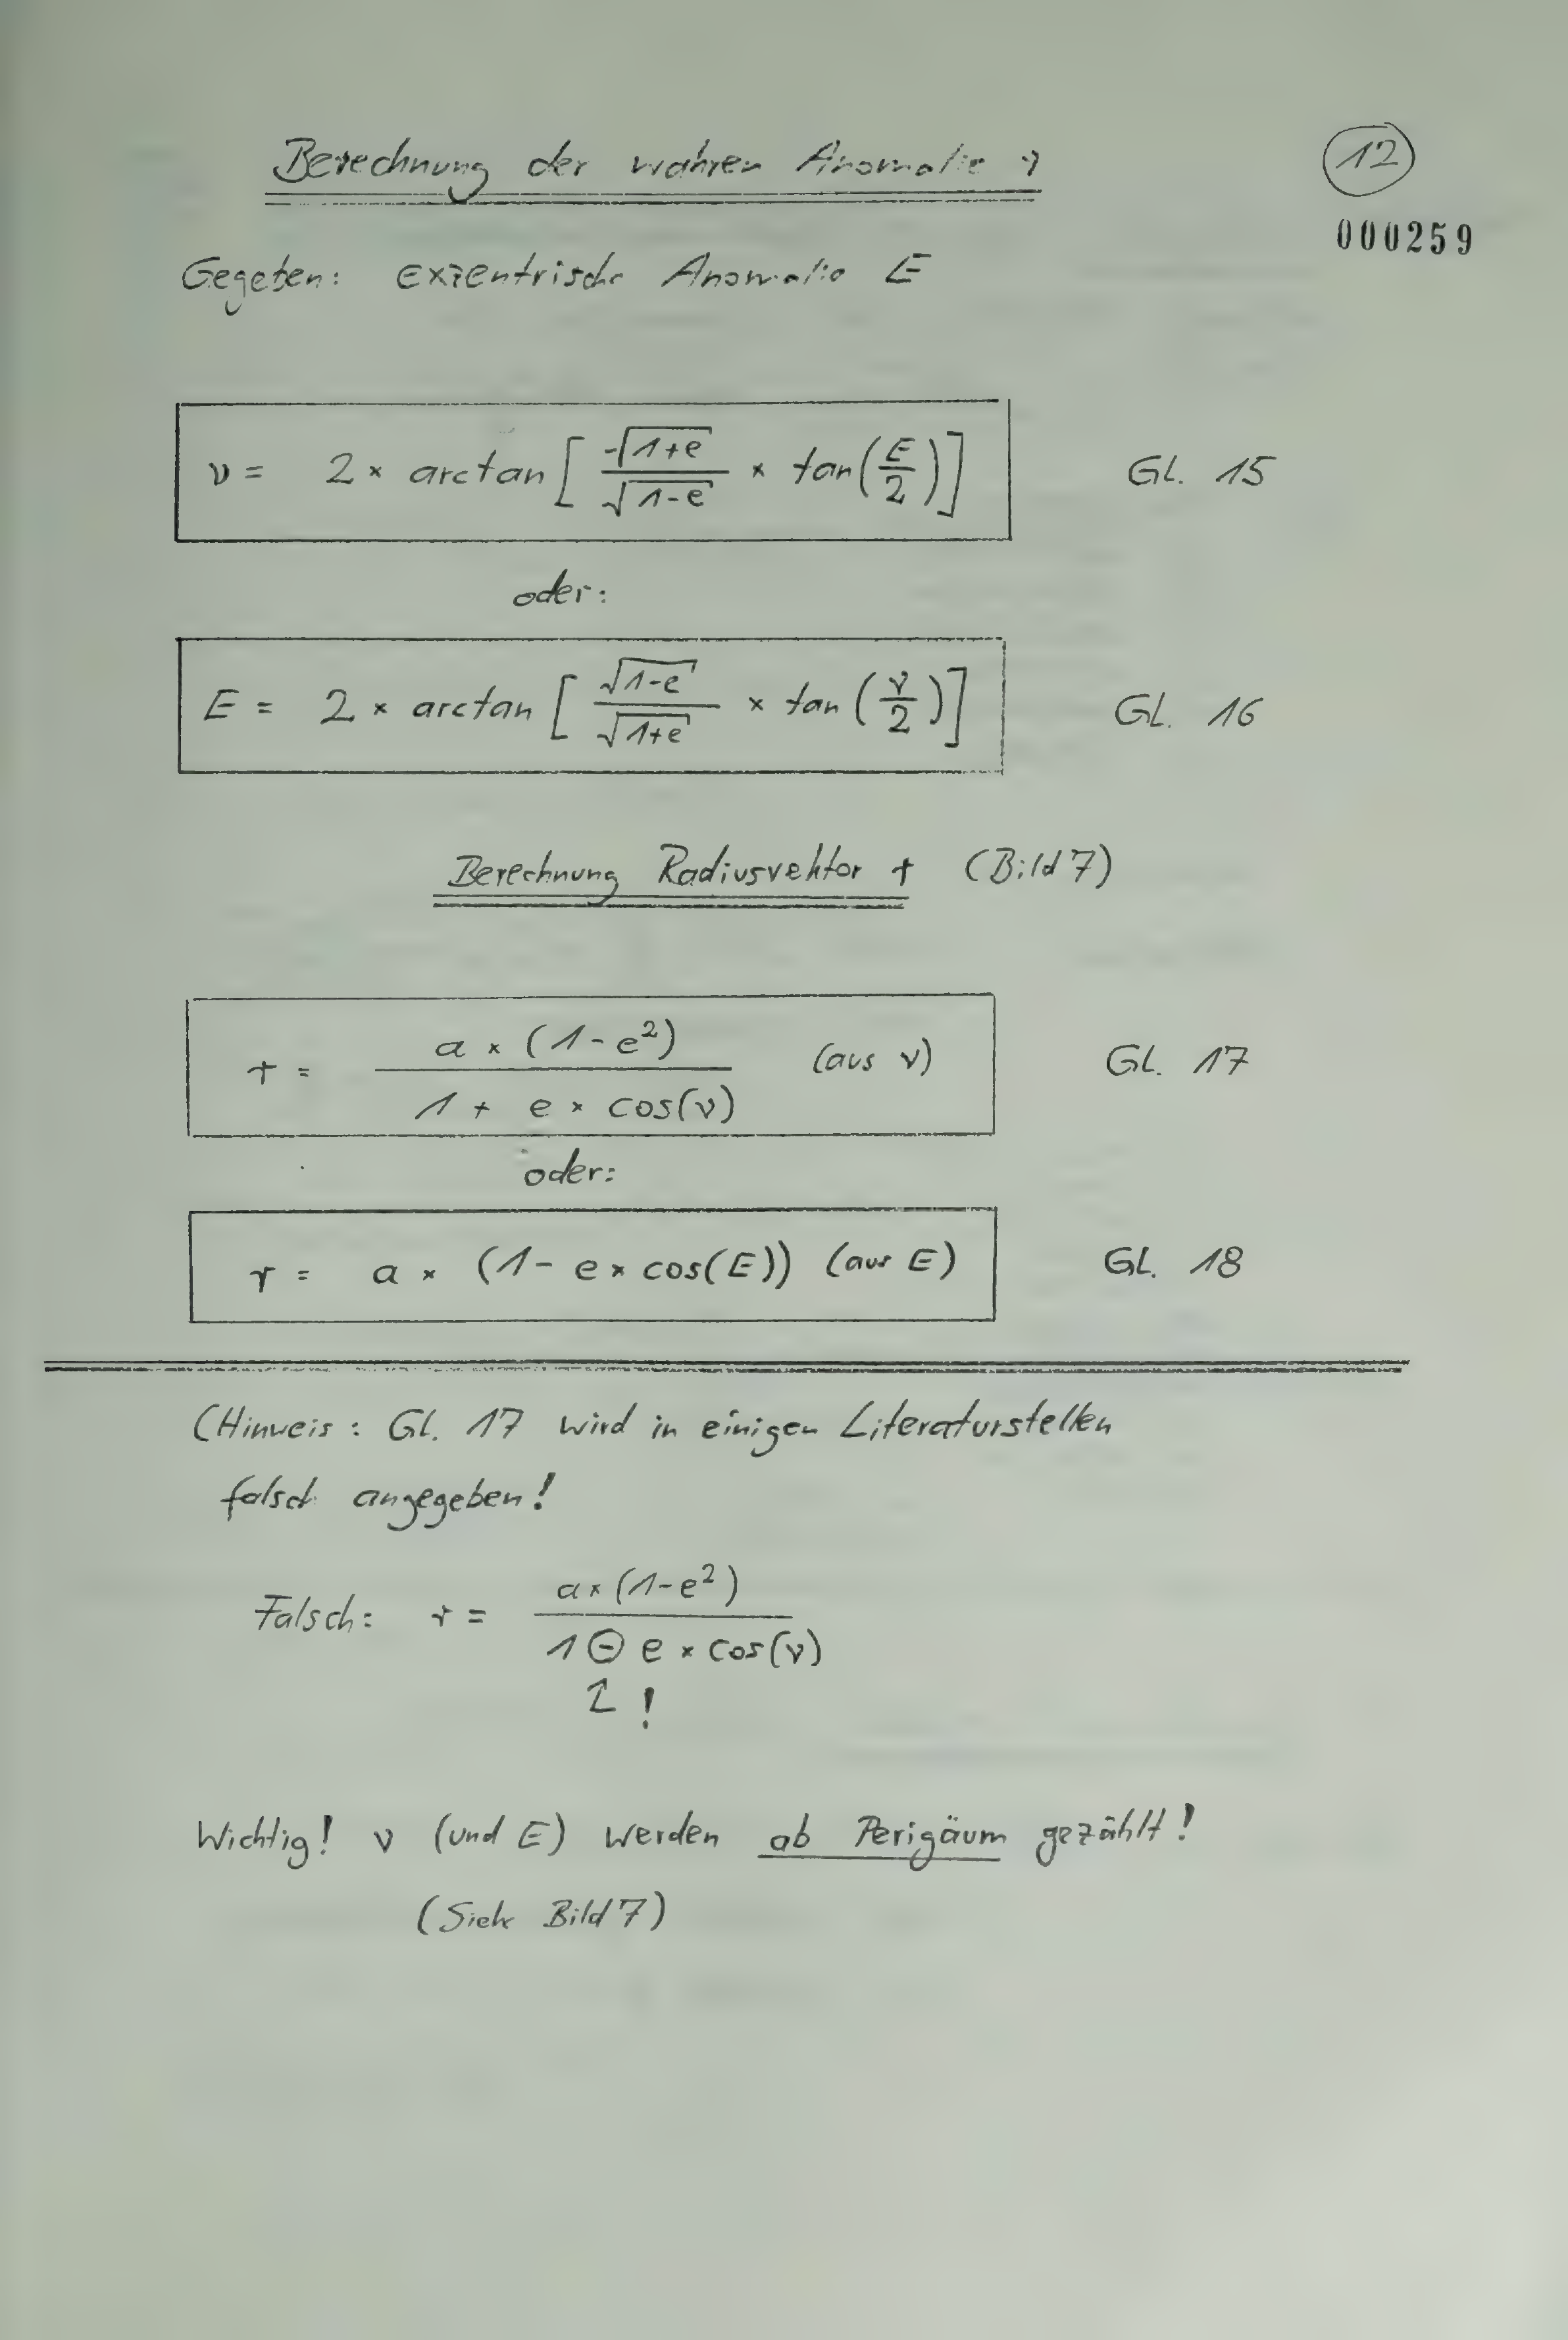 Berechnung der wahren Anomalie ν
12
000259
Gegeben: exzentrische Anomalie E
ν = 2 × arctan [ √(1+e) / √(1-e) × tan(E/2) ] Gl. 15
oder:
E = 2 × arctan [ √(1-e) / √(1+e) × tan(ν/2) ] Gl. 16
Berechnung Radiusvektor r (Bild 7)
r = a × (1 - e²) / 1 + e × cos(ν) (aus ν) Gl. 17
oder:
r = a × (1 - e × cos(E)) (aus E) Gl. 18
(Hinweis: Gl. 17 wird in einigen Literaturstellen
falsch angegeben!
Falsch: r = a × (1-e²) / 1 ⊖ e × cos(ν)
↑ !
Wichtig! ν (und E) werden ab Perigäum gezählt!
(Siehe Bild 7)